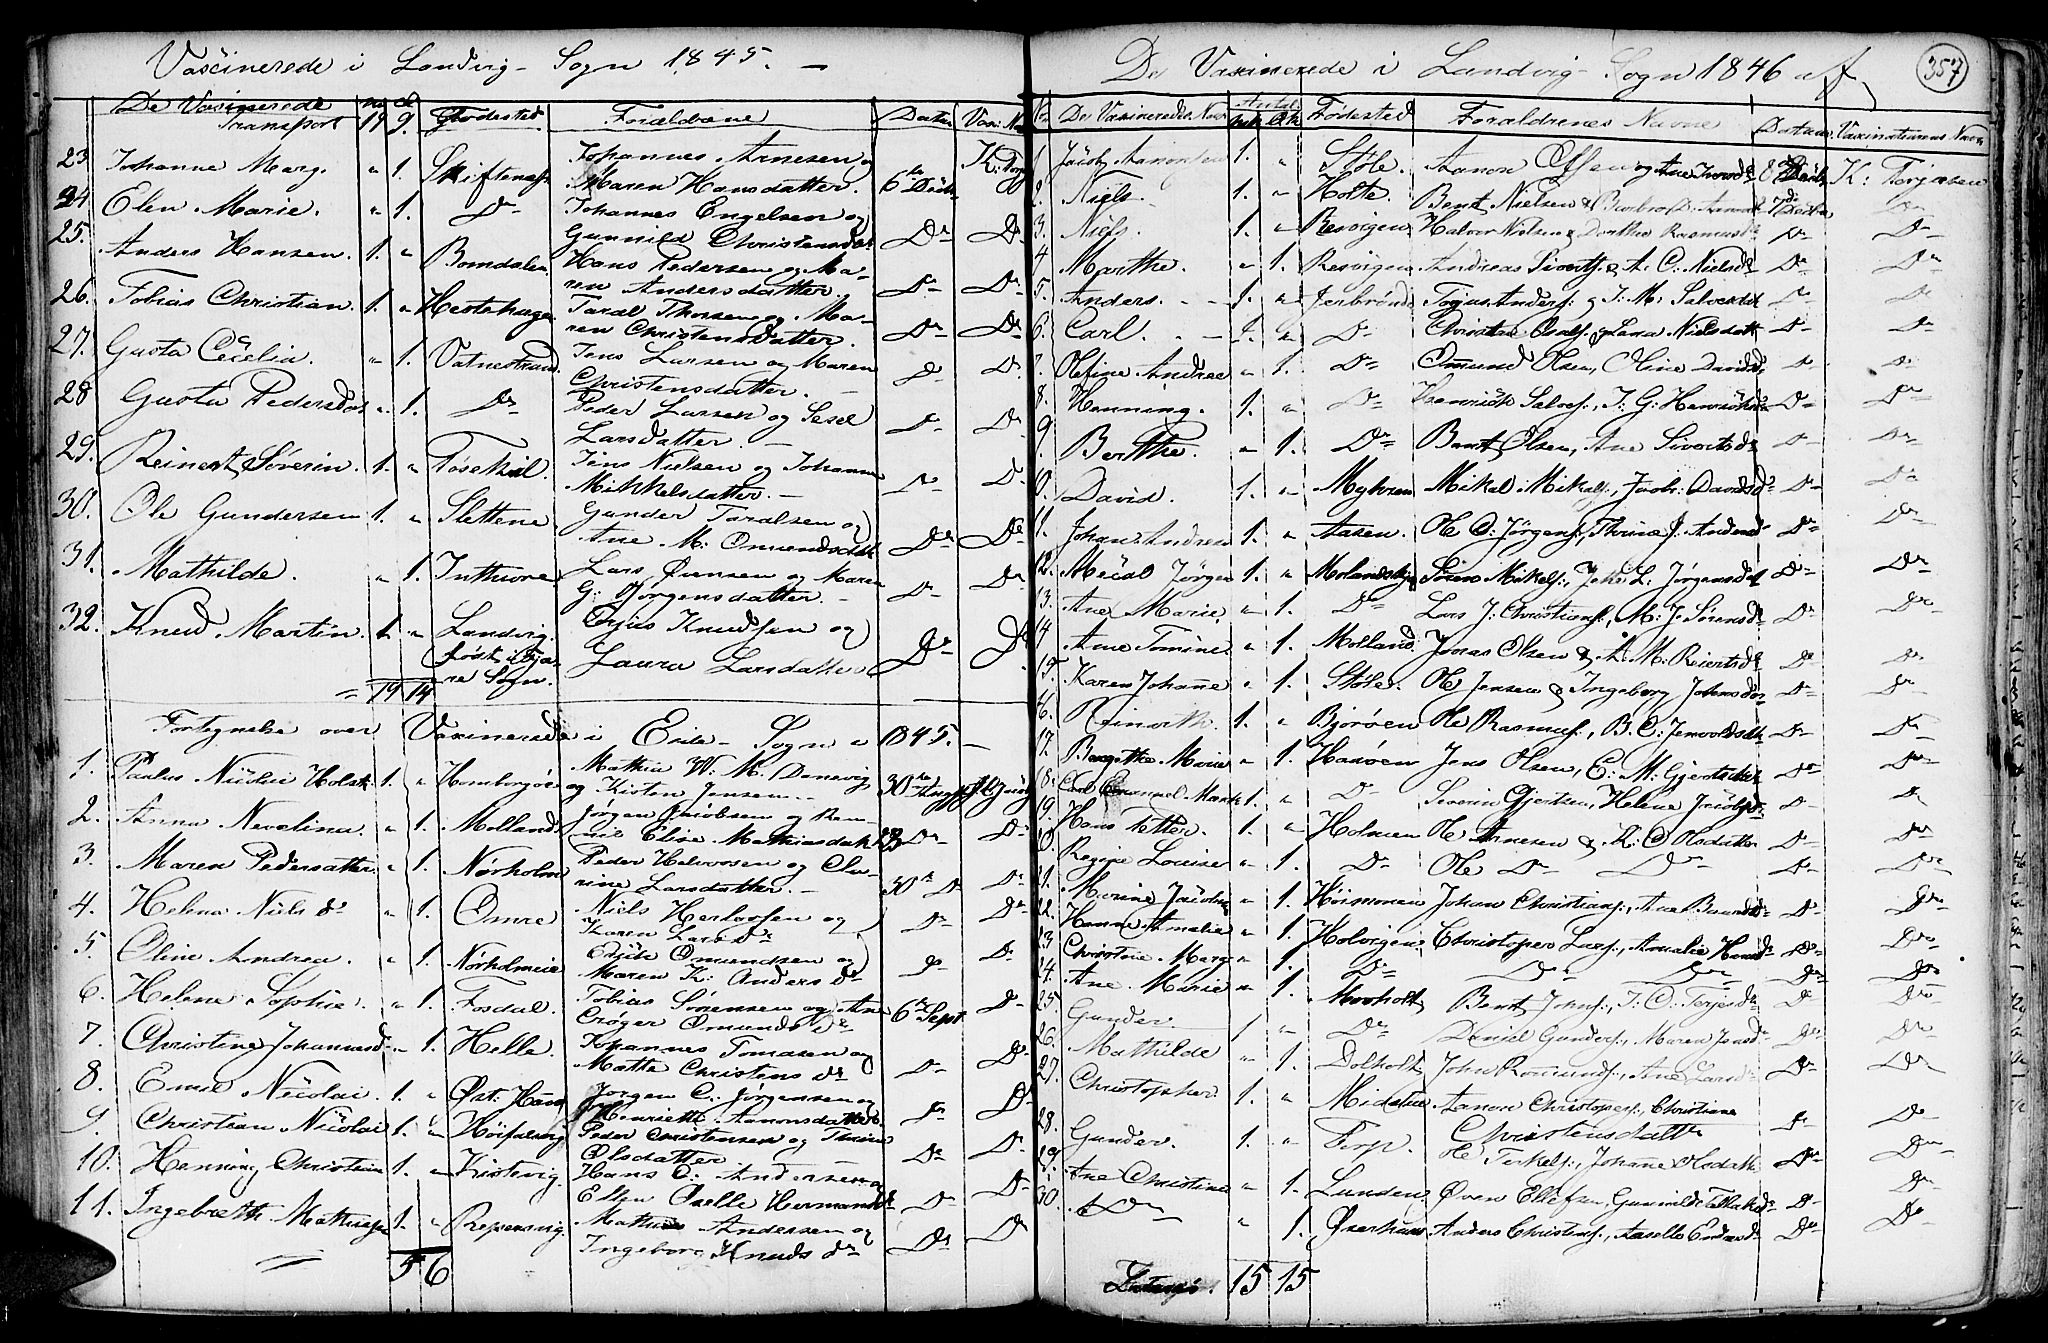 Vascinerede i Landvig Sogn 1845. —
De Vaxinerede Fødested Forældrene Datum Vax: N
Transport 19 9.
23. Johanne Marg. " 1. Skiftenæs Johannes Arnesen og
Maren Hansdatter. 6te Decbr K: Torj
24 Elen Marie. " 1. Do Johannes Engelsen og
Gunnild Christensdatt Do Do
25. Anders Hansen. 1. " Bomdalen Hans Pedersen og Ma-
ren Andersdatter. Do Do
26. Tobias Christian. 1. " Hestehagen Taral Thorsen og Ma-
ren Christensdatter. Do Do
27. Gusta Cecelia. " 1. Vatnestrand Jens Larsen og Maren
Christensdatter. — Do Do
28 Gusta Pedersdat " 1. Do Peder Larsen og Sesel
Larsdatter. — Do Do
29. Reinert Søverin. 1. " Fosekiil. Jens Nielsen og Johanne
Mikkelsdatter. — Do Do
30. Ole Gundersen 1. " Slettene Gunder Taralsen og
Ane M: Omundsdatt Do Do
31. Mathilde. " 1. Inthiore Lars Ounsen og Maren
G: Jørgensdatter. — Do Do
32. Knud Martin. 1. " Landvig. Terjus Knudsen og
født i Fjæ- Laura Larsdatter Do Do
re Sogn.
= 19 14
Fortegnelse over Vaxinerede i Eide Sogn 1845. —
1. Paulus Nicolai Holst 1. " Homborgøe Mathia W: M. Danevig
og Kisten Jensen 30te
2. Anna Nevelina " 1. Molland. Jørgen Jacobsen og
Eline Mathiasdatt 23 Do Do
3. Maren Pedersatter. " 1. Nørholm Peder Halvorsen og Ca-
rine Larsdatter. — 30te Do Do
4. Helena Niels dr " 1. Omre Niels Herlovsen og
Karen Lars dr Do Do
5. Oline Andrea. " 1. Nørholmeie Omundsen og
Maren K: Anders dr Do Do
6. Helene Sophie. " 1. Fosdal. Tobias Sørensen og Ane
Crøger Omunds dr 6te Sept Do
7. Christine Johannesd " 1. Helle. Johannes Tomasen og
Mathe Christens dr Do Do
8. Emil Nicolai. 1. " Øst: Haav Jørgen C: Jørgensen og
Henriette Aanonsdatter Do Do
9. Christian Nicolai 1. " Høifalsvig Peder Christensen og Thrine
Olsdatter Do Do
10. Henning Christein 1. " Kistevig. Hans C: Andersen og
Ellen Aselle Hermansd Do Do
11. Ingebreth Mathiasen 1. " Repersvig Mathias Andersen og
Ingeborg Knuds dr Do Do
5 6
De Vaxinerede i Landvig Sogn 1846 af 357
No De Vaxineredes Navn Antal Fødested Forældrenes Navne Datum Vaxinateurens Navn
1. Jacob Aanonsen 1. " Støle. Aanon Olsen og Ane Iversd 8 Decbr K: Torjusen
2. Niels. 1. " Holte. Bent Nielsen & Barbro D. Aanon 7de Decbr Do
3. Niels. 1. " Resvigen Halvor Nielsen & Dorthe Rasmusd Do Do
4 Marthe. " 1. Resvigen Andreas Sivertf: & A. C. Nielsdr Do Do
5. Anders. 1. " Jerbrønd Torjus Andersf: & I: M: Salvesdt Do Do
6. Carl. 1. " Do Christen Olsf: & Lena Nielsdatt Do Do
7. Olefine Andrea " 1. Do Omund Olsen, Oline Davidsd Do Do
8. Henning. 1. " Do Henrich Salvesf:, I: G: Henrichsd Do Do
9. Berthe. " 1. Do Bent Olsen, Ane Sivertsdr Do Do
10. David. 1. " Myhren Mikel Mikelf:, Jacob: Davidsdr Do Do
11. Johan Andrea 1. " Aasen. Ole C: Jørgenf:, Thrine J. Andersd Do Do
12. Micael Jørgen 1. " Molandshei Søren Mikelf:, Joh: L: Jørgensdt Do Do
13. Ane Marie. " 1. Do Lars J: Christianf:, M: J: Sørensd Do Do
14 Ane Tomine " 1. Molland. Jonas Olsen & A: M: Reiertsdr Do Do
15. Karen Johanne " 1. Støle. Ole Jensen & Ingeborg Johnsdr Do Do
16. Reinerth. 1. " Bjorøen Ole Rasmusf:, B: C: Jensvoldsdt Do Do
17. Bergithe Marie " 1. Havøen Jens Olsen, E: M: Gjertsdatter Do Do
18. Carl Emanuel 1. " Do Severin Gjertsen, Helene Jacobsd Do Do
19. Hans Petter. 1. " Holmen Ole Arnesen & K: C Olsdatter Do Do
20. Regine Louise " 1. Do Ole Do Do Do Do
21. Marine Jacobin " 1. Høismonen Johan Christianf:, Ane Berntsdr Do Do
22. Hanne Amalia " 1. Holvigen Christopher Larsf:, Amalie Hansd Do Do
23 Christine Marg " 1. Do Do Do Do Do
24. Ane Marie " 1. Morholt Bent Johnf:, I: C: Terjesdr Do Do
25. Gunder. 1 " Do Daniel Gundersf:, Maren Jensdr Do Do
26. Mathilde " 1. Dolholt John Romundf:, Ane Larsdr Do Do
27. Christopher 1. " Midstue Aanon Christopersf:, Christiane
Christensdatter Do Do
28. Gunder. 1. " Terp. Ole Terkelf:, Johanne Olsdatt Do Do
29. Ane Christine " 1. Lunden Øven Ellefsen, Gunnilde Tellefsd Do Do
30. Do " 1. Øverhaven Anders Christensf:, Aaselle Endresd Do Do
Lateris 15 15